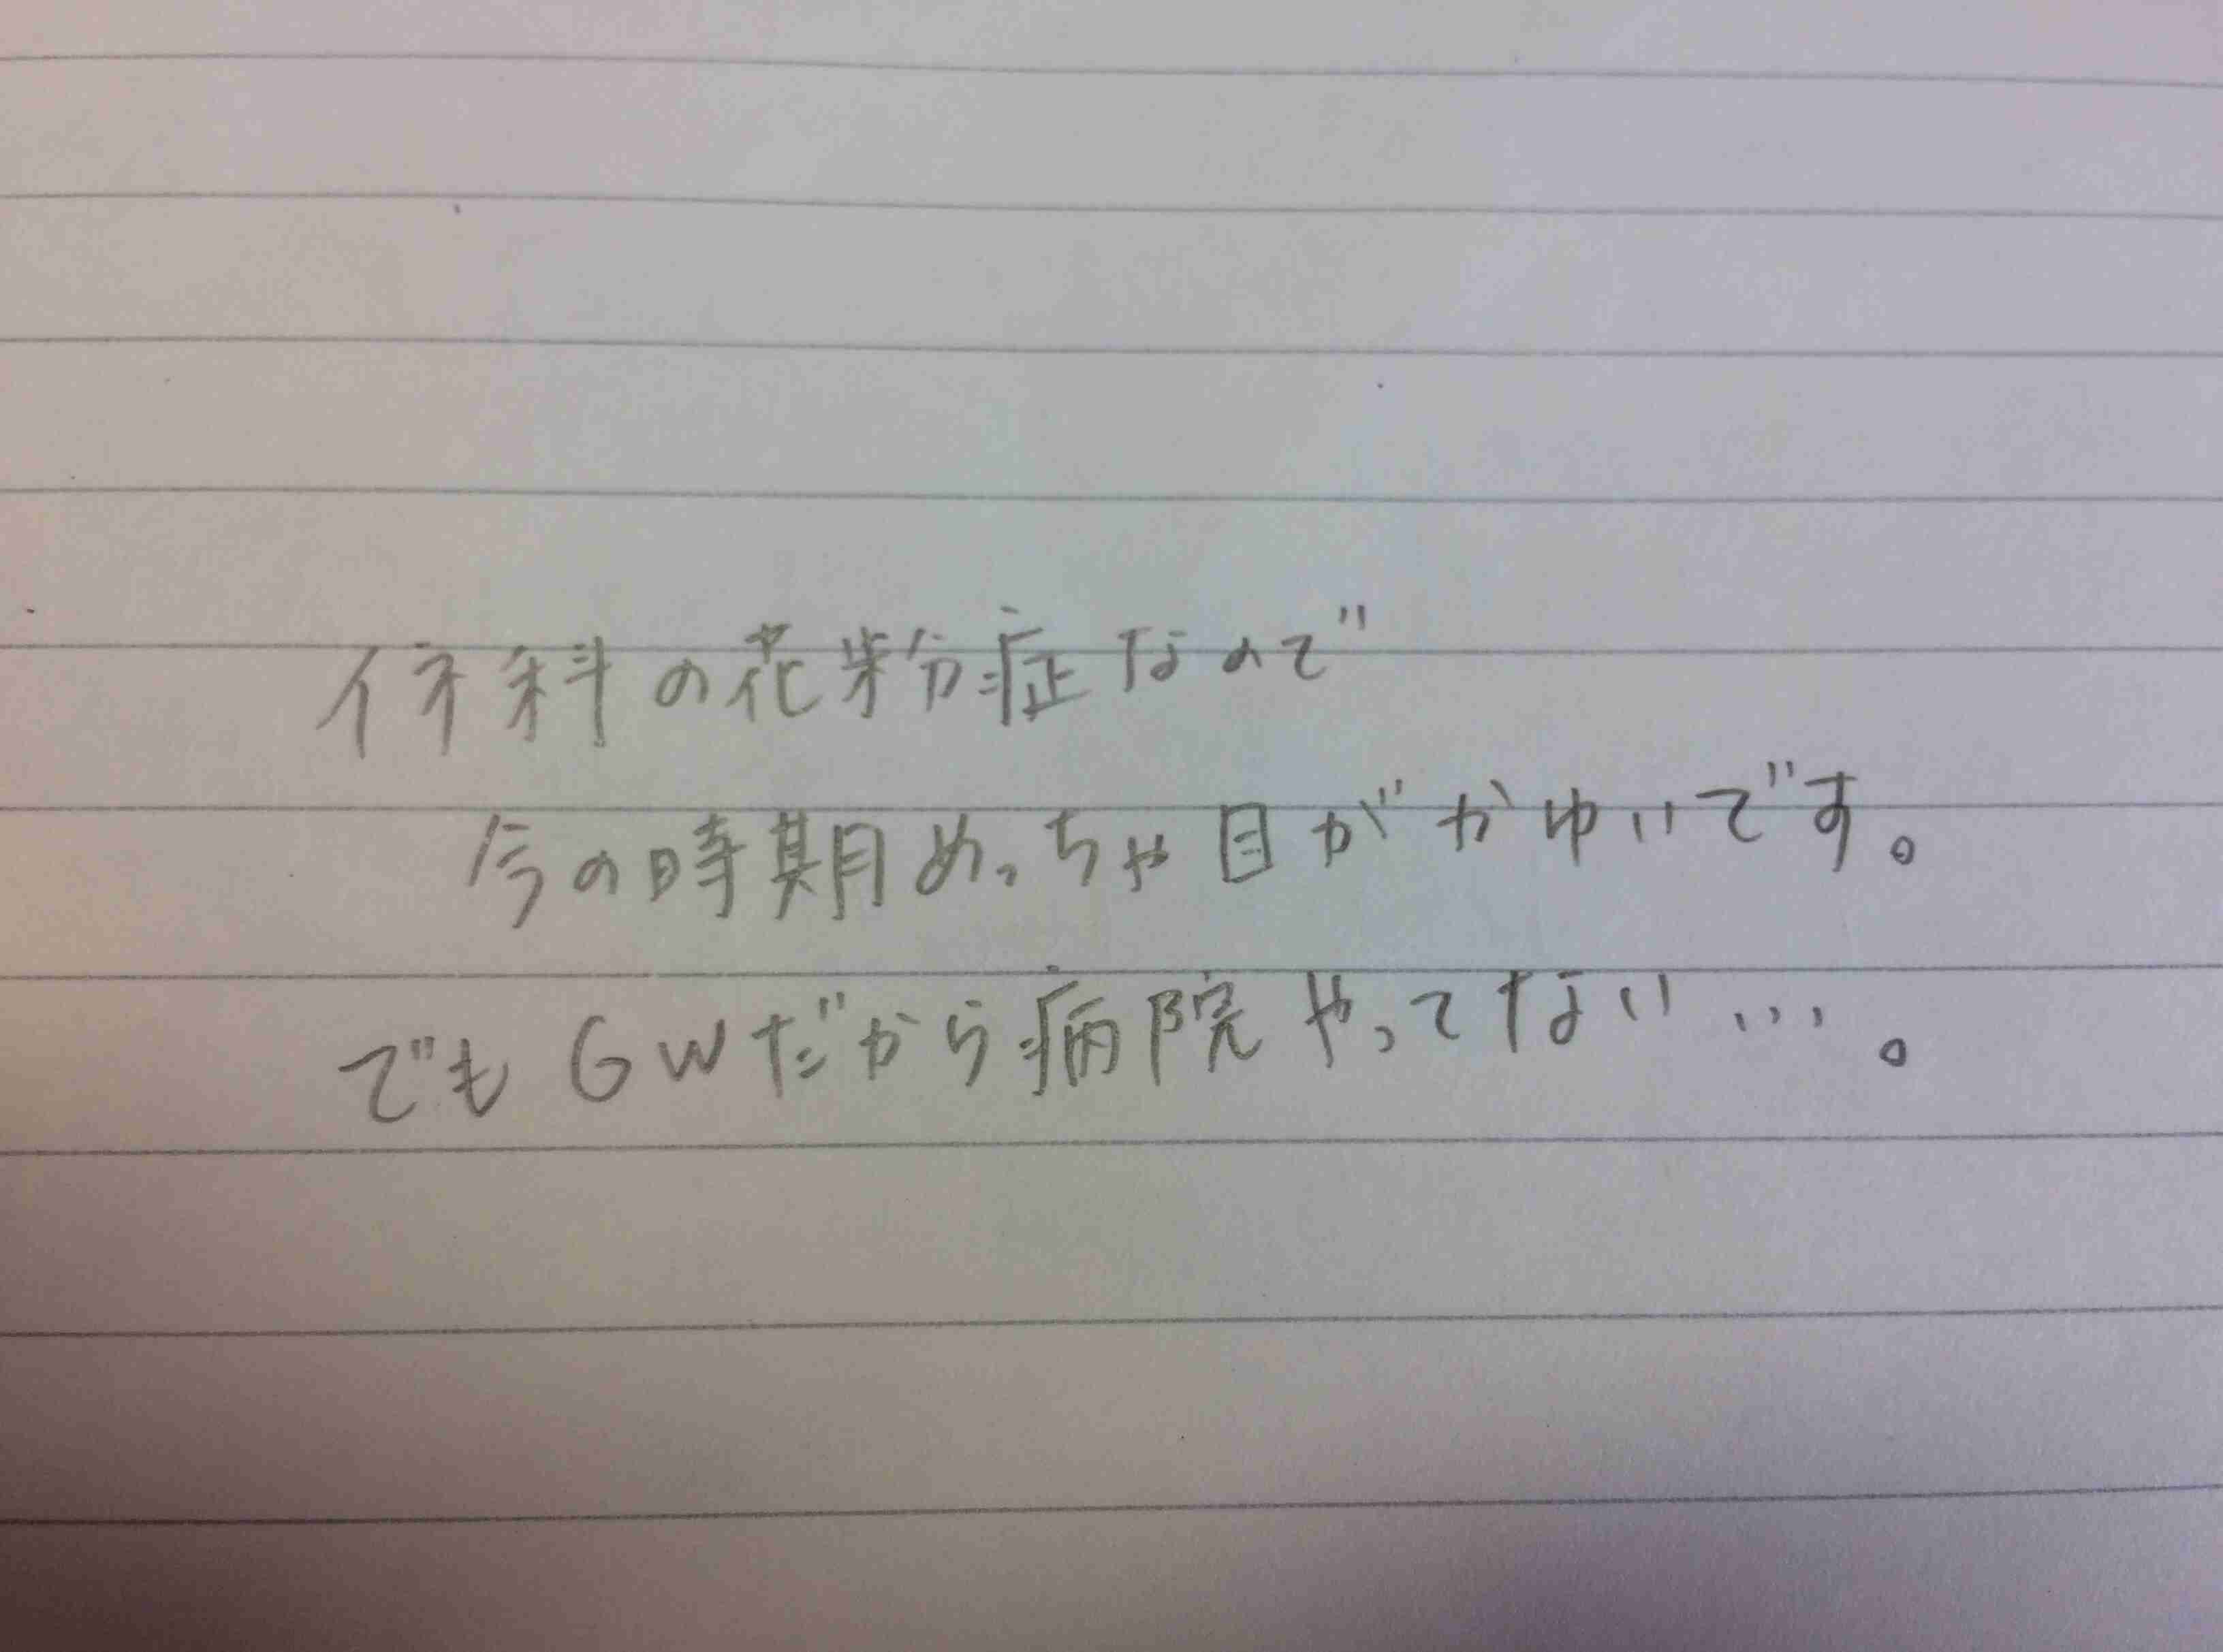 イネ科の花粉症なので
今の時期めっちゃ目がかゆいです。
でもGWだから病院やってない…。